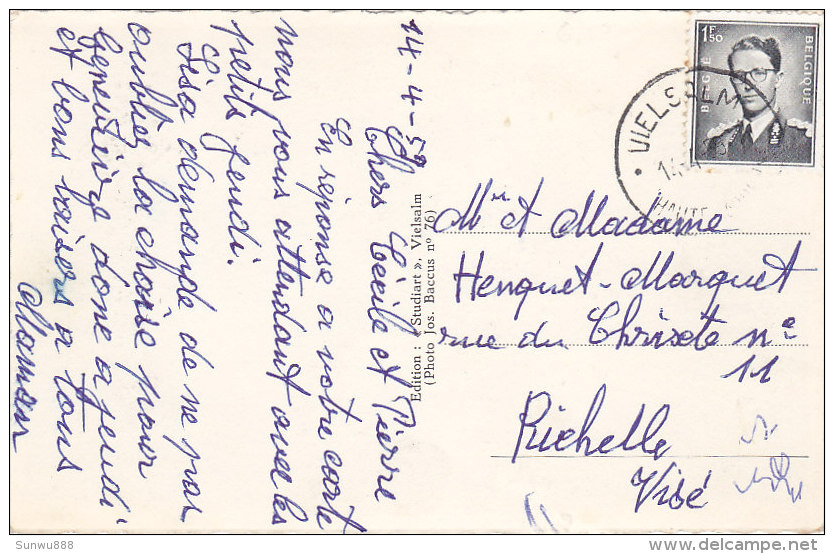 14-4-58
Chers Cécile et Pierre
En réponse a votre carte
nous vous attendant avec les
petits jeudi.
Lisa demande de ne pas
oublier la chaise pour
Geneviève donc a jeudi
et bons baisers a tous
Maman
Edition : « Studiart », Vielsalm
(Photo Jos. Baccus n° 76)
1F50
BELGIË
BELGIQUE
VIELSALM
HAUTE
Mr et Madame
Henquet-Marquet
rue du n°
11
Richelle
Visé
Sunwu888
delcampe.net